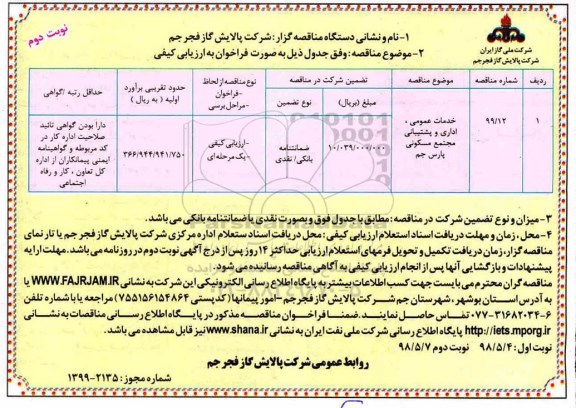 نوبت دوم
شرکت ملی گاز ایران
شرکت پالایش گاز فجر جم
۱- نام و نشانی دستگاه مناقصه گزار: شرکت پالایش گاز فجر جم
۲- موضوع مناقصه: وفق جدول ذیل به صورت فراخوان به ارزیابی کیفی
ردیف
شماره مناقصه
موضوع مناقصه
تضمین شرکت در مناقصه
مبلغ (ریال)
نوع تضمین
نوع مناقصه از لحاظ
-فراخوان
-مراحل برسی
حدود تقریبی برآورد
اولیه ( به ریال )
حداقل رتبه /گواهی
۱
۹۹/۱۲
خدمات عمومی ،
اداری و پشتیبانی
مجتمع مسکونی
پارس جم
۱۰/۰۳۹/۰۰۰/۰۰۰
ضمانتنامه
بانکی/ نقدی
-ارزیابی کیفی
-یک مرحله ای
۳۶۶/۹۴۴/۹۴۱/۷۵۰
دارا بودن گواهی تائید
صلاحیت اداره کار در
کد مربوطه و گواهینامه
ایمنی پیمانکاران از اداره
کل تعاون ، کار و رفاه
اجتماعی
۳- میزان و نوع تضمین شرکت در مناقصه: مطابق با جدول فوق و بصورت نقدی یا ضمانتنامه بانکی می باشد.
۴- محل، زمان و مهلت دریافت اسناد استعلام ارزیابی کیفی: محل دریافت اسناد ستعلام اداره مرکزی شرکت پالایش گاز فجر جم یا تارنمای
مناقصه گزار، زمان دریافت تکمیل و تحویل فرمهای استعلام ارزیابی حداکثر ۱۴ روز پس از درج آگهی نوبت دوم در روزنامه می باشد. مهلت ارایه
پیشنهادات و بازگشایی آنها پس از انجام ارزیابی کیفی به آگاهی مناقصه رسانیده می شود.
مناقصه گران محترم می بایست جهت کسب اطلاعات بیشتر به پایگاه اطلاع رسانی الکترونیکی این شرکت به نشانی WWW.FAJRJAM.IR یا
به آدرس استان بوشهر، شهرستان جم شرکت پالایش گاز فجر جم -امور پیمانها (کد پستی ۷۵۵۱۵۶۱۵۴۸۶۴) مراجعه یا با شماره تلفن
۰۷۷-۳۱۶۸۲۰۳۴-۶ تماس حاصل نمایند. ضمنا فراخوان مناقصه مذکور در پایگاه اطلاع رسانی مناقصات به نشانی
http://iets.mporg.ir پایگاه اطلاع رسانی شرکت ملی نفت ایران به نشانی www.shana.ir نیز قابل مشاهده می باشد.
نوبت اول: ۹۸/۵/۴ نوبت دوم ۹۸/۵/۷
روابط عمومی شرکت پالایش گاز فجر جم
شماره مجوز: ۲۱۳۵-۱۳۹۹